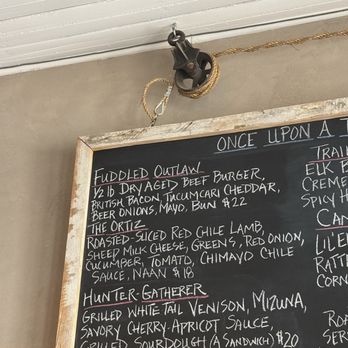 ONCE UPON A
FUDDLED OUTLAW
1/2 LB DRY AGED BEEF BURGER,
BRITISH BACON, TACUMCARI CHEDDAR,
BEER ONIONS, MAYO, BUN $22
THE ORTIZ
ROASTED-SLICED RED CHILE LAMB,
SHEEP MILK CHEESE, GREENS, RED ONION,
CUCUMBER, TOMATO, CHIMAYO CHILE
SAUCE, NAAN $18
HUNTER-GATHERER
GRILLED WHITE TAIL VENISON, MIZUNA,
SAVORY CHERRY-APRICOT SAUCE,
GRILLED SOURDOUGH (A SANDWICH) $20
TRAI
ELK B
CREME
SPICY H
CAN
LIL'E
RATT
CRE
ROA
SER